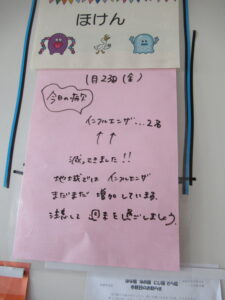 ほけん
1月23日(金)
今日の病欠
インフルエンザ…2名
↑↑
減ってきました!!
地域では インフルエンザ
まだまだ 増加している様
注意して 週末を過ごしましょう。